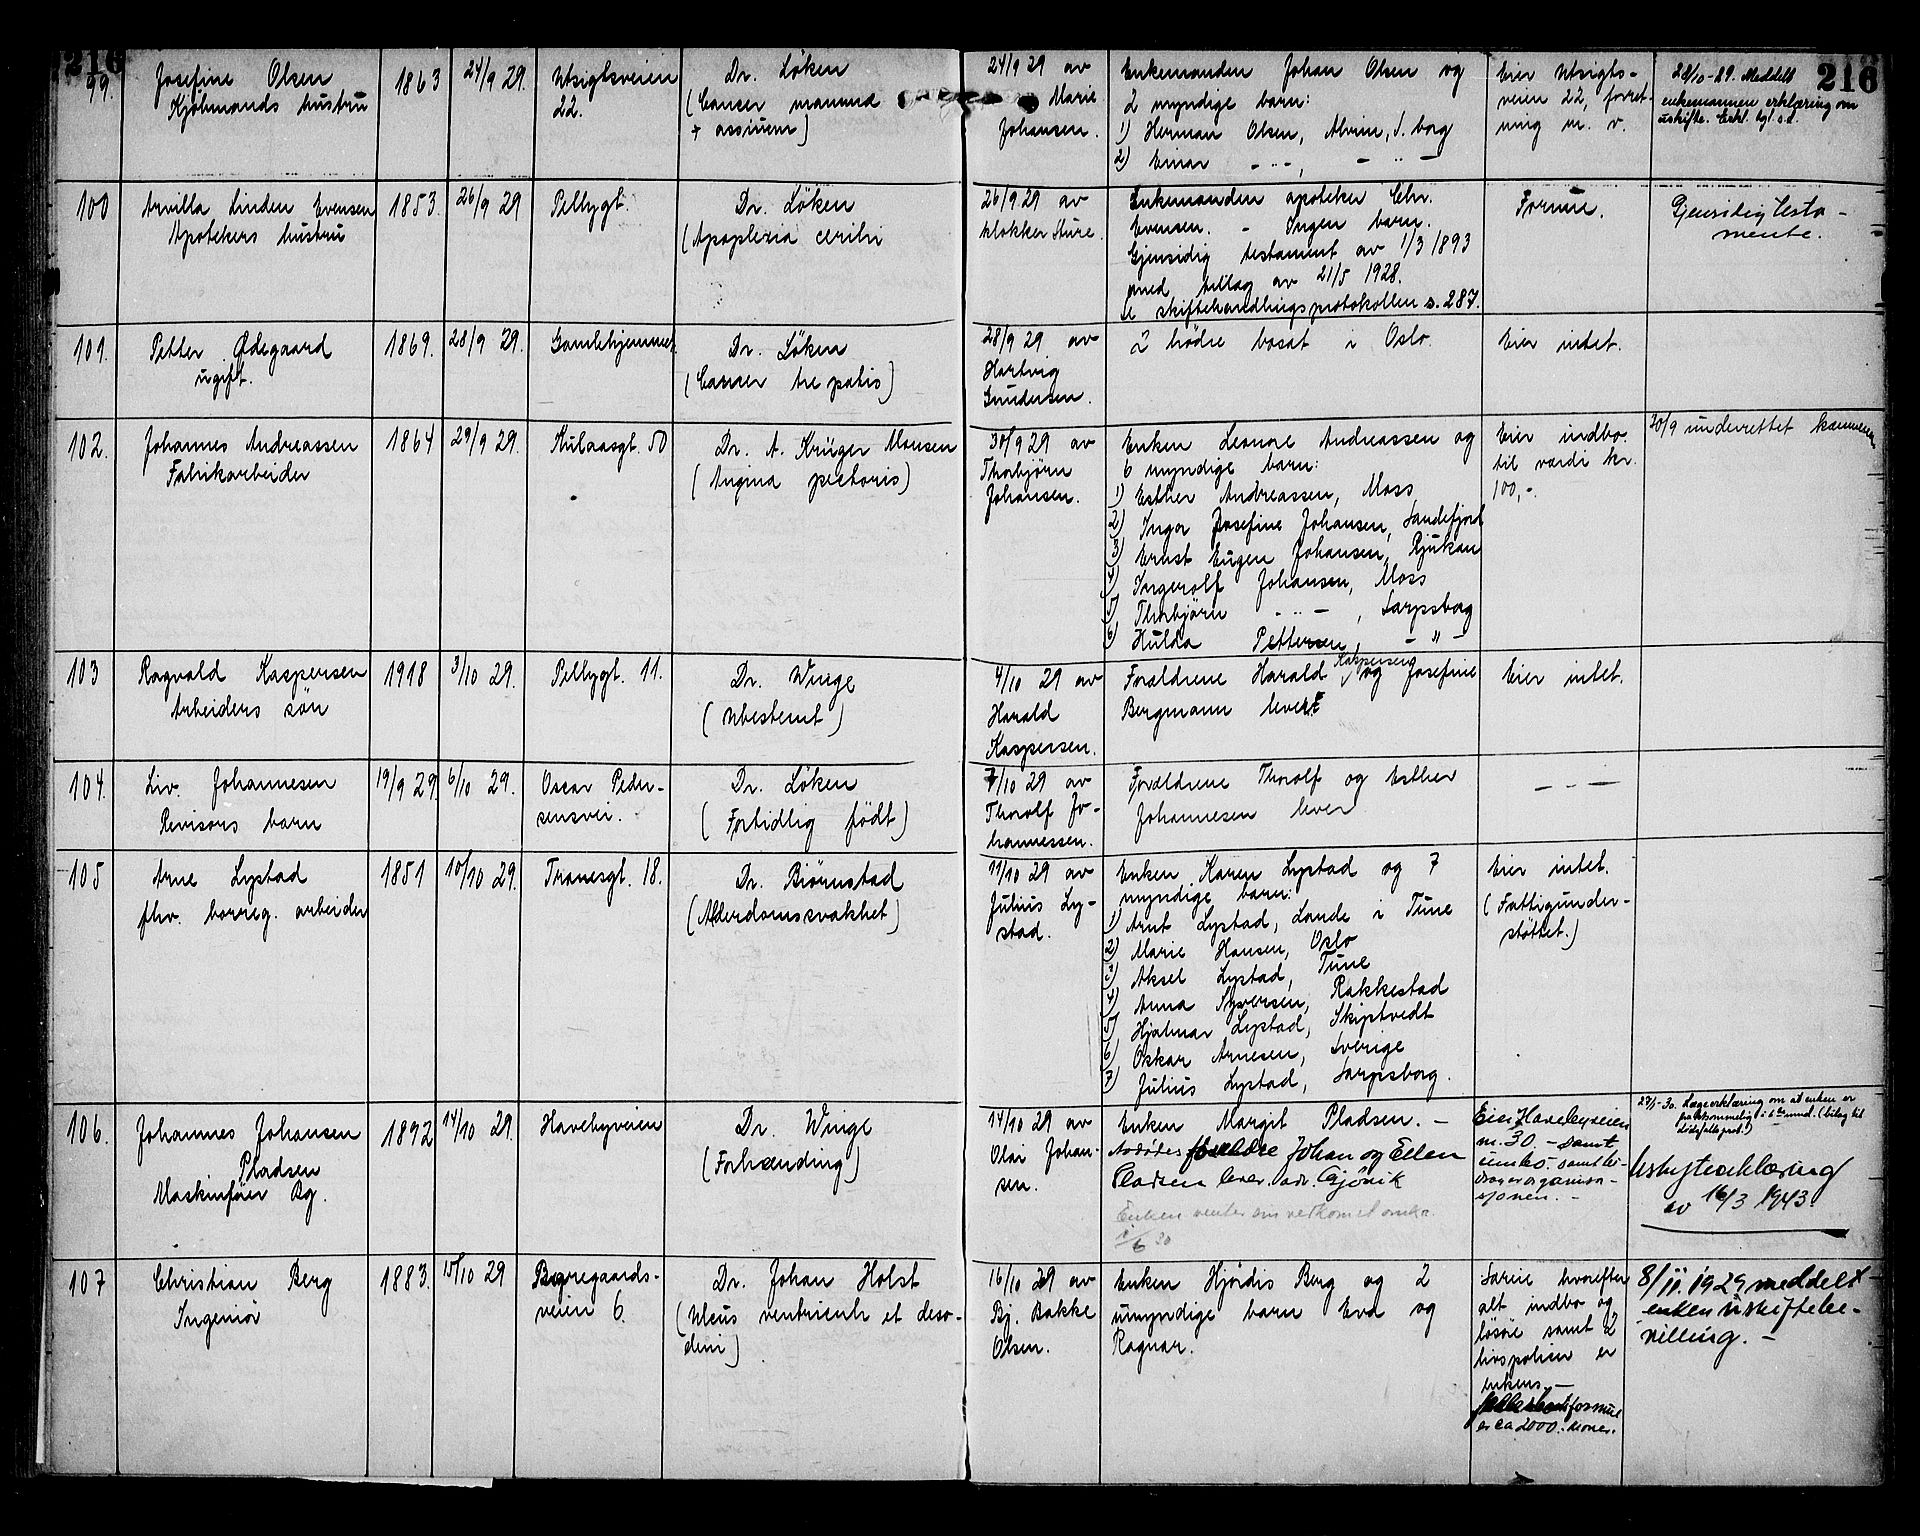 216
216
99.
Josefine Olsen
Kjöbmands hustru
1863
24/9 29.
Utsigtsveien
22.
Dr. Löken
(Cancer mamma
+ ossium)
24/9 29 av
Marie
Johansen.
Enkemanden Johan Olsen og
2 myndige barn:
1) Herman Olsen, Alvim, S. borg
2) Einar - " -, - " -
Eier Utsigts-
veien 22, forret-
ning m. v.
28/10-29. Meddelt
enkemannen erklæring om
uskifte. Erkl. tgl. s.d.
100
Arvilla Linden Evensen
Apotekers hustru
1853.
26/9 29
Pellygt.
Dr. Löken
(Apoplexia cerebri
26/9 29 av
klokker Sture.
Enkemanden apoteker Chr.
Evensen. - Ingen barn.
Gjensidig testament av 1/3 1893
med tillæg av 21/5 1928.
Se skiftebehandlingsprotokollen s. 287.
Formue.
Gjensidig testa-
mente.
101.
Petter Ødegaard
ugift.
1869.
28/9 29.
Gamlehjemmet.
Dr. Löken
(Cancer hepatis)
28/9 29 av
Hartvig
Gundersen.
2 brödre bosat i Oslo.
Eier intet.
102.
Johannes Andreassen
Fabrikarbeider
1864
29/9 29.
Kulaasgt. 50
Dr. A. Krüger Monsen
(Angina pectoris)
30/9 29 av
Thorbjörn
Johansen.
Enken Leonore Andreassen og
6 myndige barn:
1) Esther Andreassen, Moss
2) Inga Josefine Johansen, Sandefjord
3) Ernst Eugen Johansen, Rjukan
4) Ingerolf Johansen, Moss
5) Thorbjörn - " -, Sarpsborg
6) Hulda Pettersen, - " -
Eier indbo
til værdi kr.
100,-.
30/9 underrettet kæmneren
103
Ragvald Kaspersen
Arbeiders sön
1918
3/10 29.
Pellygt. 11.
Dr. Winge
(Ubestemt)
4/10 29 av
Harald
Kaspersen.
Forældrene Harald Kaspersen og Josefine
Bergmann lever.
Eier intet.
104.
Liv. Johannesen
Revisors barn
19/9 29.
6/10 29.
Oscar Peder-
sensvei.
Dr. Löken
(Fortidlig födt)
7/10 29 av
Thorolf Jo-
hannessen.
Forældrene Thorolf og Esther
Johannesen lever
- " -
105
Arne Lystad
fhv. borreg. arbeider
1851
10/10 29.
Tranesgt. 18.
Dr. Björnstad
(Alderdomssvakhet)
11/10 29 av
Julius Ly-
stad.
Enken Karen Lystad og 7
myndige barn:
1) Arnt Lystad, Lande i Tune
2) Marie Hansen, Oslo
3) Aksel Lystad, Tune
4) Anna Syversen, Rakkestad
5) Hjalmar Lystad, Skiptvedt
6) Oskar Arnesen, Sverige
7) Julius Lystad, Sarpsborg.
Eier intet.
(Fattigunder-
stöttet.)
106.
Johannes Johansen
Pladsen
Maskinförer Bg.
1892
14/10 29.
Havebyveien
Dr. Winge
(Forblødning)
14/10 29 av
Olai Johan-
sen.
Enken Margit Pladsen. -
Avdødes foreldre Johan og Ellen
Pladsen lever. adr. Gjövik
Enken venter
1/6 30
Eier Havebyveien
nr. 30. - samt
innbo. samt
organisa-
sjonen. -
27/1-30. Lægeerklæring om at enken er
i 6te mnd. (bilag til
dødsfallsprot.)
Uskifteerklæring
av 16/3 1943.
107
Christian Berg
Ingeniör
1883.
15/10 29
Borregaards-
veien 6.
Dr. Johan Holst
(Ulcus ventriculi et duo-
deni)
16/10 29 av
Bj. Bakke
Olsen.
Enken Hjördis Berg og 2
umyndige barn Eva og
Ragnar.
Særeie hvorefter
alt indbo og
lösöre samt 2
livspoliser er
enkens. -
formue
er ca 2000. kroner.
8/11. 1929 meddelt
enken uskiftebe-
villing. -